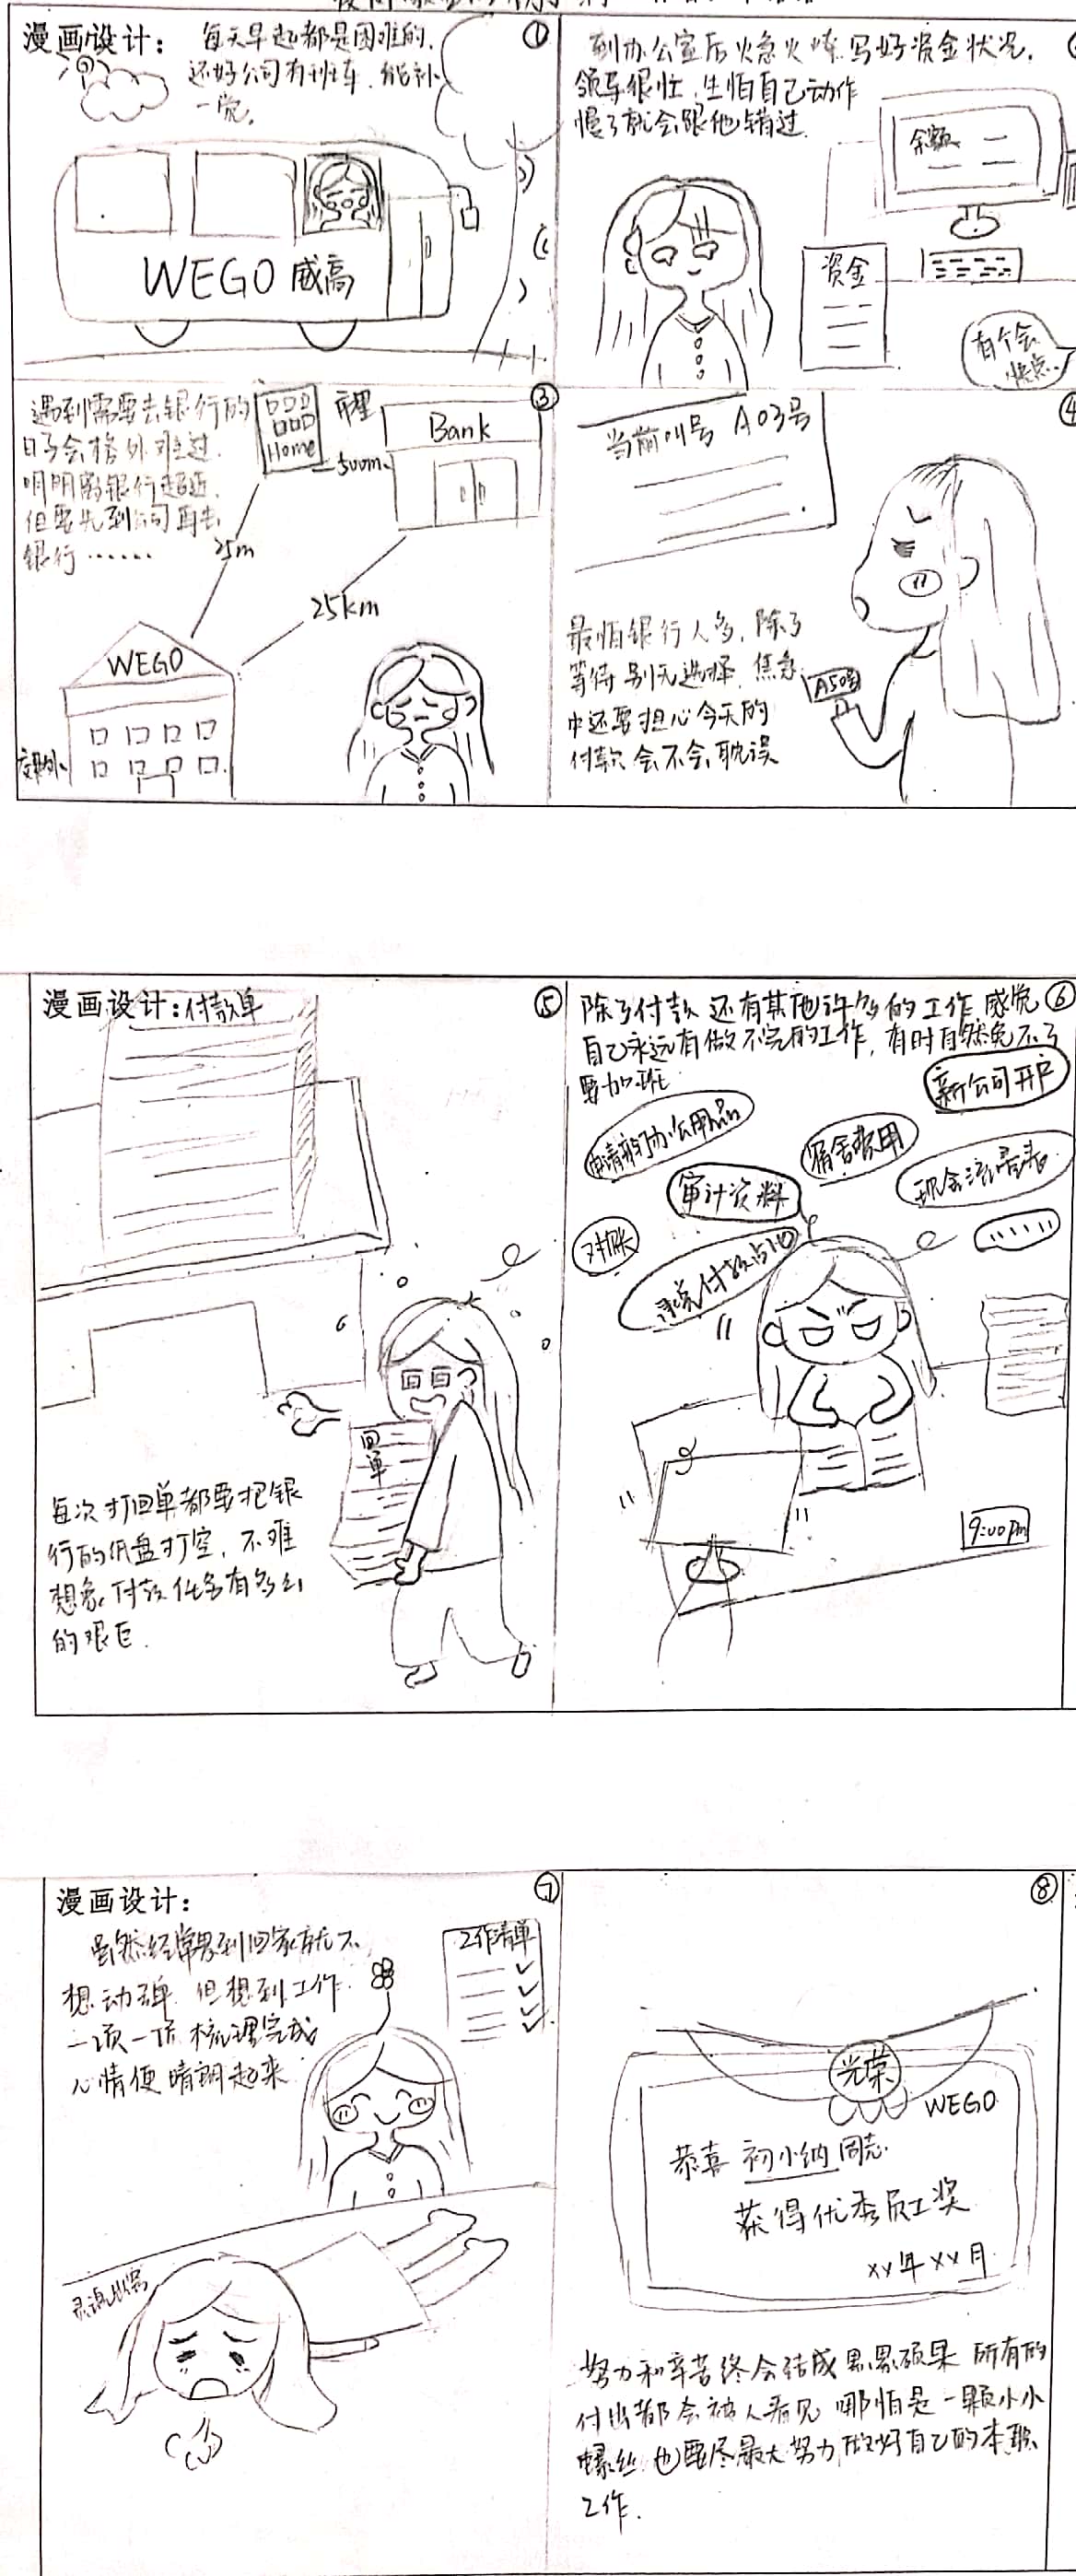 漫画设计:
每天早起都是困难的,
还好公司有班车,能补
一觉。
①
WEGO 威高
到办公室后火急火燎写好资金状况,
领导很忙,生怕自己动作
慢了就会跟他错过.
余额
资金
有个会
快点.
遇到需要去银行的
日子会格外难过.
明明离银行超近,
但要先到公司再去
银行······
③
Home
市里
500m
Bank
25m
25km
WEGO
郊外
④
当前叫号 A03号
最怕银行人多,除了
等待别无选择,焦急
中还要担心今天的
付款会不会耽误
A50号
漫画设计:付款单
⑤
回单
每次打回单都要把银
行的纸盘打空,不难
想象,付款任务有多么
的艰巨.
除了付款还有其他许多的工作,感觉
⑥
自己永远有做不完的工作,有时自然免不了
要加班
新公司开户
申请部门办公用品
宿舍费用
审计资料
现金流量表
对账
······
9:00pm
漫画设计:
⑦
虽然经常累到回家就不
想动弹,但想到工作
一项一项梳理完成
心情便晴朗起来
工作清单
灵魂出窍
⑧
光荣
WEGO
恭喜 初小纳 同志
获得优秀员工奖
xx年xx月
努力和辛苦终会结成累累硕果 所有的
付出都会被人看见 哪怕是一颗小小
螺丝 也要尽最大努力做好自己的本职
工作.